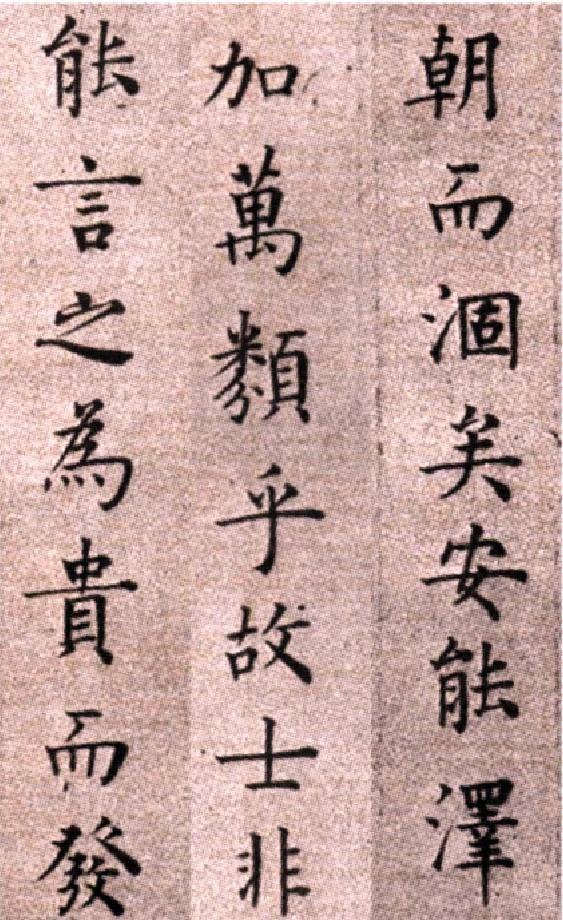 朝而涸矣安能澤
加萬類乎故士非
能言之為貴而發